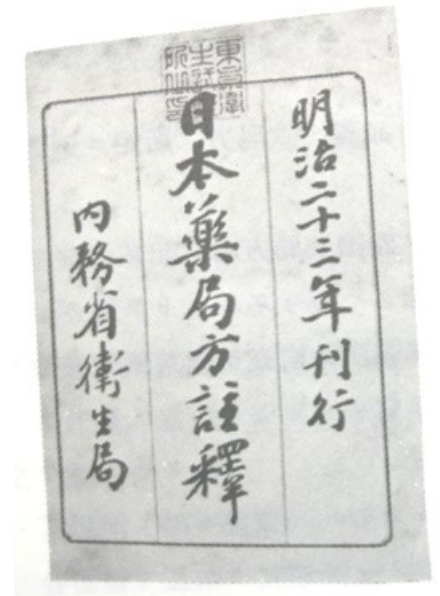 明治二十三年刊行
日本藥局方註釋
內務省衞生局